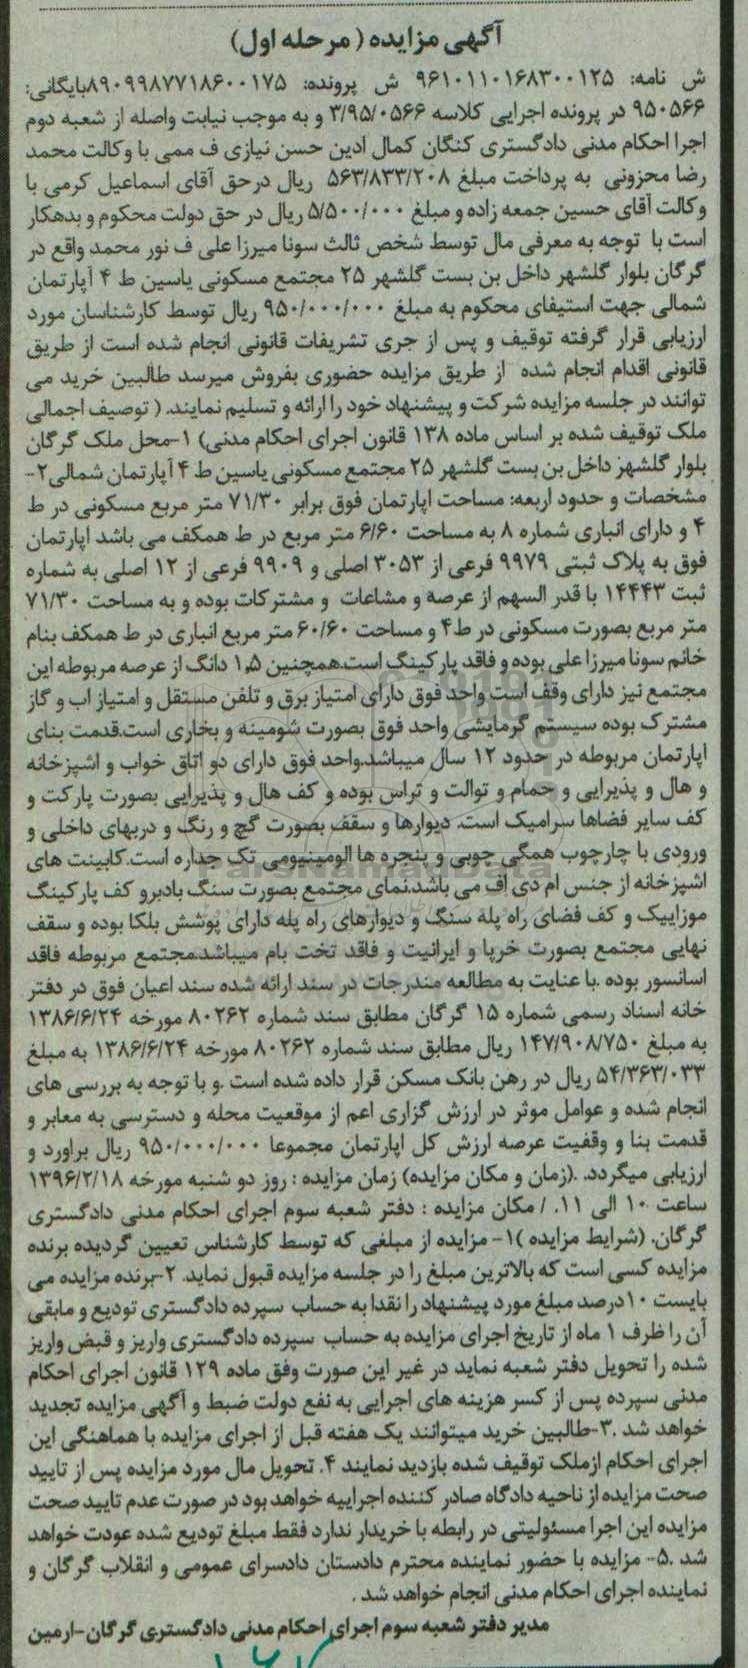 آگهی مزایده ( مرحله اول)
ش نامه: ۹۶۱۰۱۱۰۱۶۸۳۰۰۱۲۵ ش پرونده: ۸۹۰۹۹۸۷۷۱۸۶۰۰۱۷۵بایگانی:
۹۵۰۵۶۶ در پرونده اجرایی کلاسه ۳/۹۵/۰۵۶۶ و به موجب نیابت واصله از شعبه دوم
اجرا احکام مدنی دادگستری کنگان کمال ادین حسن نیازی ف ممی با وکالت محمد
رضا محزونی به پرداخت مبلغ ۵۶۳/۸۳۳/۲۰۸ ریال درحق آقای اسماعیل کرمی با
وکالت آقای حسین جمعه زاده و مبلغ ۵/۵۰۰/۰۰۰ ریال در حق دولت محکوم و بدهکار
است با توجه به معرفی مال توسط شخص ثالث سونا میرزا علی ف نور محمد واقع در
گرگان بلوار گلشهر داخل بن بست گلشهر ۲۵ مجتمع مسکونی یاسین ط ۴ آپارتمان
شمالی جهت استیفای محکوم به مبلغ ۹۵۰/۰۰۰/۰۰۰ ریال توسط کارشناسان مورد
ارزیابی قرار گرفته توقیف و پس از جری تشریفات قانونی انجام شده است از طریق
قانونی اقدام انجام شده از طریق مزایده حضوری بفروش میرسد طالبین خرید می
توانند در جلسه مزایده شرکت و پیشنهاد خود را ارائه و تسلیم نمایند. ( توصیف اجمالی
ملک توقیف شده بر اساس ماده ۱۳۸ قانون اجرای احکام مدنی) ۱-محل ملک گرگان
بلوار گلشهر داخل بن بست گلشهر ۲۵ مجتمع مسکونی یاسین ط ۴ آپارتمان شمالی ۲-
مشخصات و حدود اربعه: مساحت اپارتمان فوق برابر ۷۱/۳۰ متر مربع مسکونی در ط
۴ و دارای انباری شماره ۸ به مساحت ۶/۶۰ متر مربع در ط همکف می باشد اپارتمان
فوق به پلاک ثبتی ۹۹۷۹ فرعی از ۳۰۵۳ اصلی و ۹۹۰۹ فرعی از ۱۲ اصلی به شماره
ثبت ۱۴۴۴۳ با قدر السهم از عرصه و مشاعات و مشترکات بوده و به مساحت ۷۱/۳۰
متر مربع بصورت مسکونی در ط۴ و مساحت ۶۰/۶۰ متر مربع انباری در ط همکف بنام
خانم سونا میرزا علی بوده و فاقد پارکینگ است.همچنین ۱,۵ دانگ از عرصه مربوطه این
مجتمع نیز دارای وقف است واحد فوق دارای امتیاز برق و تلفن مستقل و امتیاز اب و گاز
مشترک بوده سیستم گرمایشی واحد فوق بصورت شومینه و بخاری است.قدمت بنای
اپارتمان مربوطه در حدود ۱۲ سال میباشد.واحد فوق دارای دو اتاق خواب و اشپزخانه
و هال و پذیرایی و حمام و توالت و تراس بوده و کف هال و پذیرایی بصورت پارکت و
کف سایر فضاها سرامیک است. دیوارها و سقف بصورت گچ و رنگ و دربهای داخلی و
ورودی با چارچوب همگی چوبی و پنجره ها الومینیومی تک جداره است.کابینت های
اشپزخانه از جنس ام دی اف می باشد.نمای مجتمع بصورت سنگ بادبرو کف پارکینگ
موزاییک و کف فضای راه پله سنگ و دیوارهای راه پله دارای پوشش بلکا بوده و سقف
نهایی مجتمع بصورت خرپا و ایرانیت و فاقد تخت بام میباشد.مجتمع مربوطه فاقد
اسانسور بوده .با عنایت به مطالعه مندرجات در سند ارائه شده سند اعیان فوق در دفتر
خانه اسناد رسمی شماره ۱۵ گرگان مطابق سند شماره ۸۰۲۶۲ مورخه ۱۳۸۶/۶/۲۴
به مبلغ ۱۴۷/۹۰۸/۷۵۰ ریال مطابق سند شماره ۸۰۲۶۲ مورخه ۱۳۸۶/۶/۲۴ به مبلغ
۵۴/۳۶۳/۰۳۳ ریال در رهن بانک مسکن قرار داده شده است .و با توجه به بررسی های
انجام شده و عوامل موثر در ارزش گزاری اعم از موقعیت محله و دسترسی به معابر و
قدمت بنا و وقفیت عرصه ارزش کل اپارتمان مجموعا ۹۵۰/۰۰۰/۰۰۰ ریال براورد و
ارزیابی میگردد. .(زمان و مکان مزایده) زمان مزایده : روز دو شنبه مورخه ۱۳۹۶/۲/۱۸
ساعت ۱۰ الی ۱۱. / مکان مزایده : دفتر شعبه سوم اجرای احکام مدنی دادگستری
گرگان. (شرایط مزایده )۱- مزایده از مبلغی که توسط کارشناس تعیین گردیده برنده
مزایده کسی است که بالاترین مبلغ را در جلسه مزایده قبول نماید. ۲-برنده مزایده می
بایست ۱۰درصد مبلغ مورد پیشنهاد را نقدا به حساب سپرده دادگستری تودیع و مابقی
آن را ظرف ۱ ماه از تاریخ اجرای مزایده به حساب سپرده دادگستری واریز و قبض واریز
شده را تحویل دفتر شعبه نماید در غیر این صورت وفق ماده ۱۲۹ قانون اجرای احکام
مدنی سپرده پس از کسر هزینه های اجرایی به نفع دولت ضبط و آگهی مزایده تجدید
خواهد شد .۳-طالبین خرید میتوانند یک هفته قبل از اجرای مزایده با هماهنگی این
اجرای احکام ازملک توقیف شده بازدید نمایند ۴. تحویل مال مورد مزایده پس از تایید
صحت مزایده از ناحیه دادگاه صادر کننده اجراییه خواهد بود در صورت عدم تایید صحت
مزایده این اجرا مسئولیتی در رابطه با خریدار ندارد فقط مبلغ تودیع شده عودت خواهد
شد .۵- مزایده با حضور نماینده محترم دادستان دادسرای عمومی و انقلاب گرگان و
نماینده اجرای احکام مدنی انجام خواهد شد .
مدیر دفتر شعبه سوم اجرای احکام مدنی دادگستری گرگان-ارمین